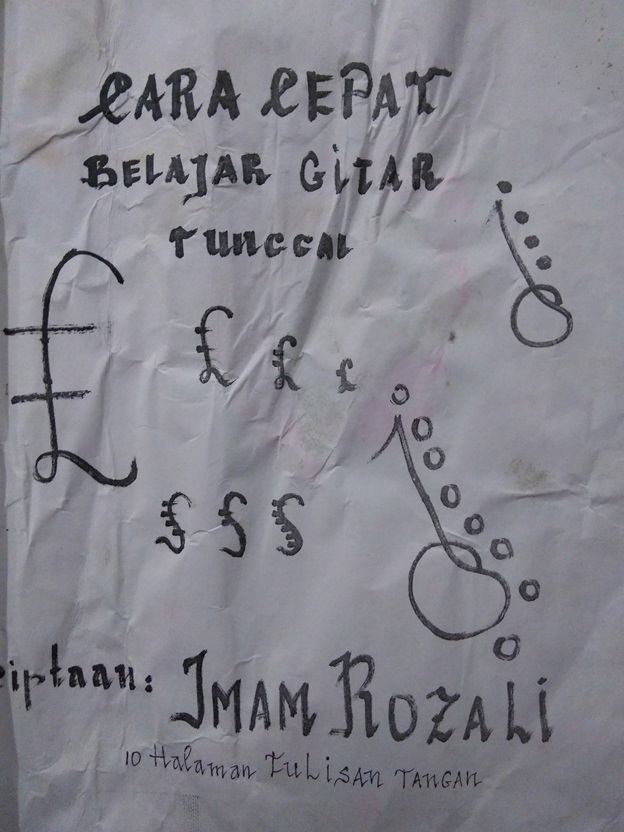 CARA CEPAT
BELAJAR GITAR
TUNGGAL
£
£ £ £
ciptaan: IMAM ROZALI
10 Halaman TULISAN TANGAN